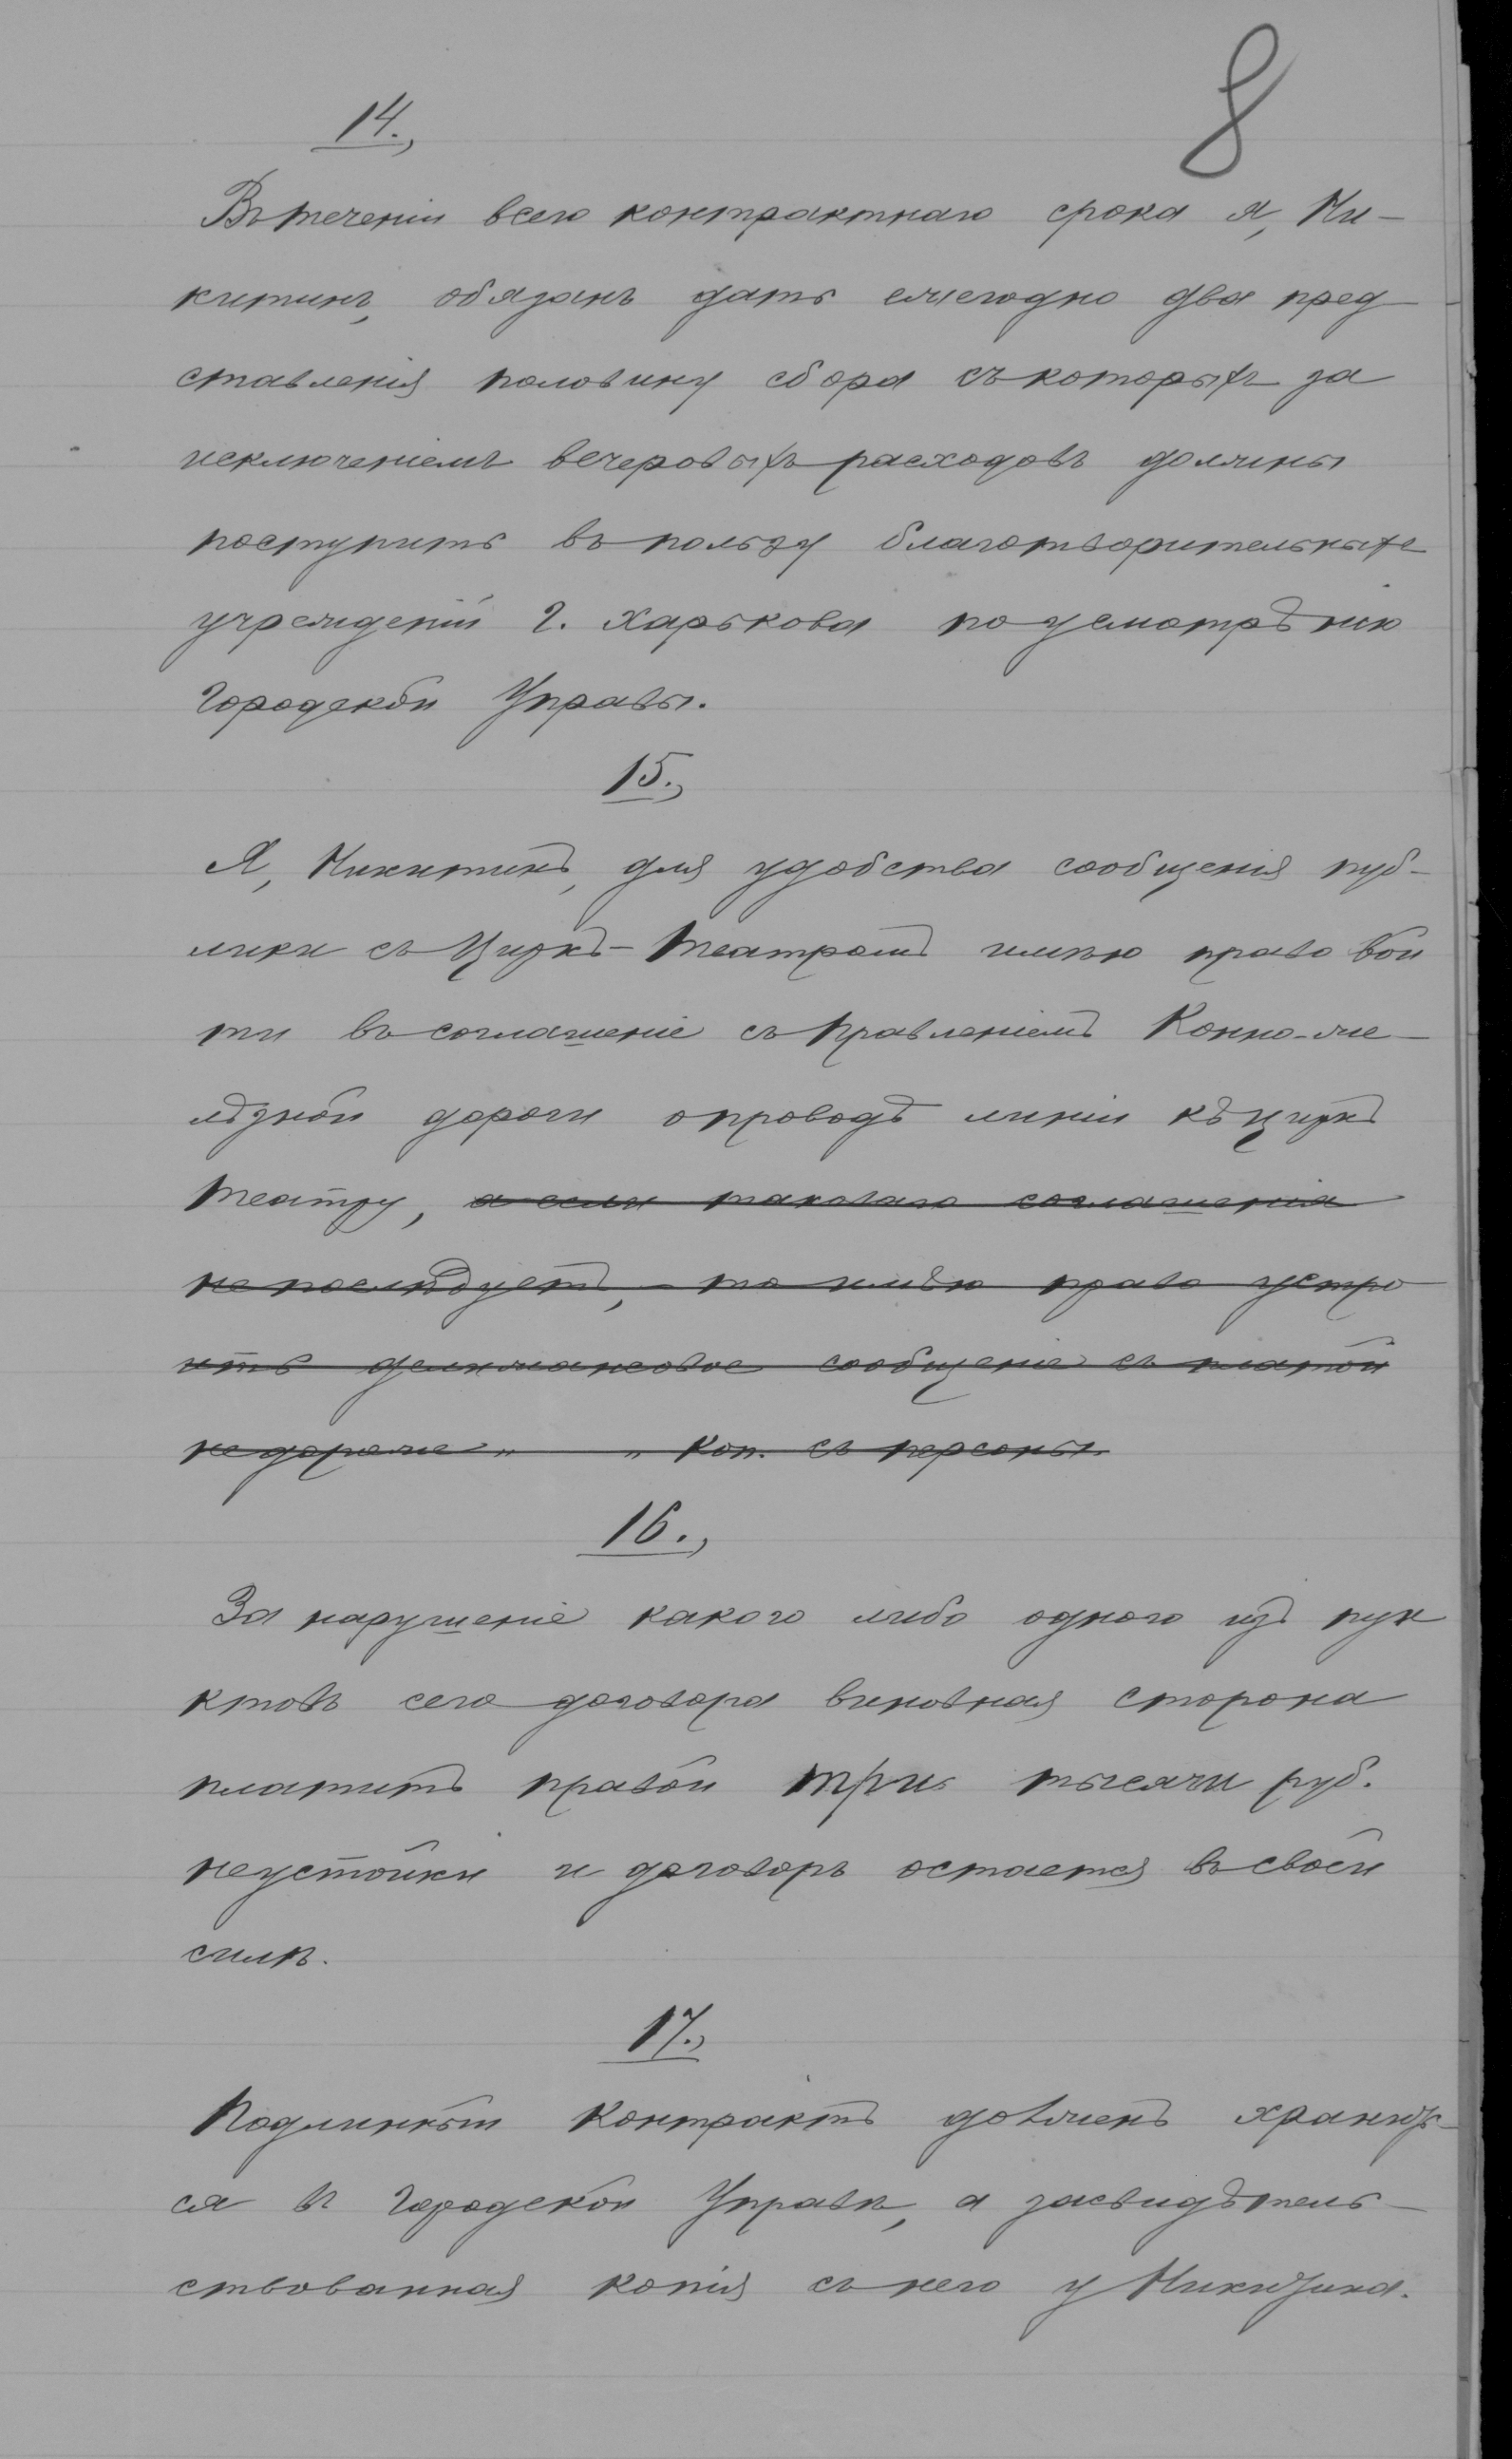 8
14.,
Въ теченіи всего контрактнаго срока я, Ни-
китинъ, обязанъ дать ежегодно два пред-
ставленія половину сбора съ которыхъ за
исключеніемъ вечеровыхъ расходовъ должны
поступить въ пользу благотворительныхъ
учрежденій г. Харькова по усмотрѣнію
Городской Управы.
15.,
Я, Никитинъ, для удобства сообщенія пуб-
лики съ Циркъ-Театромъ имѣю право вой
ти въ соглашеніе съ Правленіемъ Конно-же-
лѣзной дороги о проводѣ линіи къ циркъ
Театру, а если таковаго соглашенія
не послѣдуетъ, - то имѣю право устро
ить дилижансовое сообщеніе съ платой
не дороже " " коп. съ персоны.
16.,
За нарушеніе какого либо одного изъ пун
ктовъ сего договора виновная сторона
платитъ правой три тысячи руб.
неустойки и договоръ остается въ своей
силѣ.
17.,
Подлинный контрактъ долженъ хранить-
ся въ Городской Управѣ, а засвидѣтель-
ствованная копія съ него у Никитина.